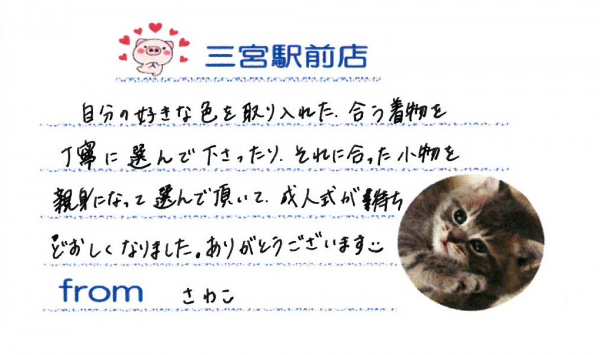 三宮駅前店
自分の好きな色を取り入れた、合う着物を
丁寧に選んで下さったり、それに合った小物を
親身になって選んで頂いて、成人式が待ち
どおしくなりました。ありがとうございます
from さわこ